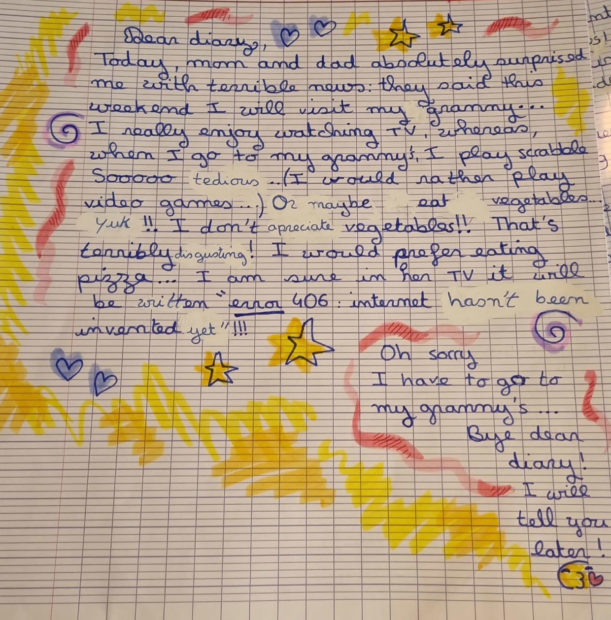 Dear diary,
Today, mom and dad absolutely surprised
me with terrible news: they said this
weekend I will visit my grammy...
I really enjoy watching TV, whereas,
when I go to my grammy's, I play scrabble
Sooooo tedious...(I would rather play
video games...) Or maybe eat vegetables...
Yuk !!! I don't apreciate vegetables!! That's
terribly disgusting! I would prefer eating
pizza... I am sure in her TV it will
be written "error 406: internet hasn't been
invented yet"!!!
Oh sorry
I have to go to
my grammy's...
Bye dear
diary!
I will
tell you
later!